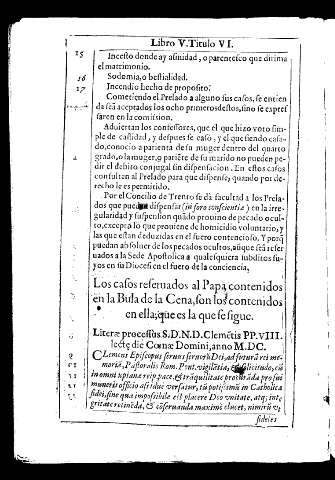 Libro V. Titulo VI.
15 Incesto donde ay afinidad, o parentesco que dirima
el matrimonio.
16 Sodomia, o bestialidad.
17 Incendio hecho de proposito.
Cometiendo el Prelado a alguno sus casos, se entien
da serã aceptados los ocho primeros destos, sino se expres
saren en la comission.
Aduiertan los confessores, que el que hizo voto sim
ple de castidad, y despues se caso, y el que siendo casa-
do, conocio a parienta de su muger dentro del quarto
grado, o la muger, o pariẽte de su marido no pueden pe-
dir el debito conjugal sin dispensacion. En estos casos
consulten al Prelado para que dispense, quando por de-
recho le es permitido.
Por el Concilio de Trento se dà facultad a los Prela-
dos que puedan dispensar (in foro conscientiæ) en la irre-
gularidad y suspension quãdo prouino de pecado ocul-
to, excepto lo que prouiene de homicidio voluntario, y
las que estan deduzidas en el fuero contencioso. Y porq̃
puedan absoluer de los pecados ocultos, aũque seã reser
uados a la Sede Apostolica a qualesquiera subditos su-
yos en su Diocesi en el fuero de la conciencia,
Los casos reseruados al Papa contenidos
en la Bula de la Cena, son los contenidos
en ella, que es la que se sigue.
Literæ processus S.D.N.D. Clemẽtis PP. VIII.
lectę die Cœnæ Domini, anno M.DC.
Clemens Episcopus seruus seruorũ Dei, ad futurã rei me-
moriã, Pastoralis Rom. Pont. vigilãtia, & solicitudo, cũ
in omni reip pace, & trãquilitate procurãda pro sui
muneris officio assiduè versatur, tũ potissimũ in Catholica
fidei, sine qua impossibile est placere Deo vnitate, atq; int̃,
gritate retinẽda, & cõseruanda maximè elucet, nimirũ vt
fideles